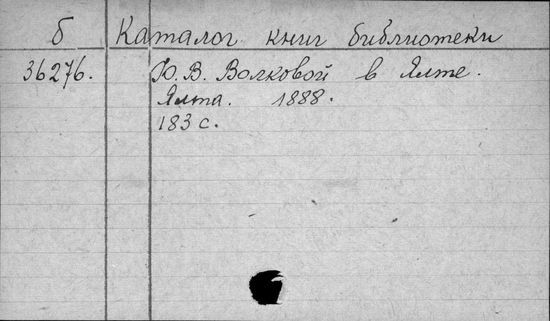 б Каталог книг библиотеки
36276. Ю. В. Волковой в Ялте.
Ялта. 1888.
183 с.